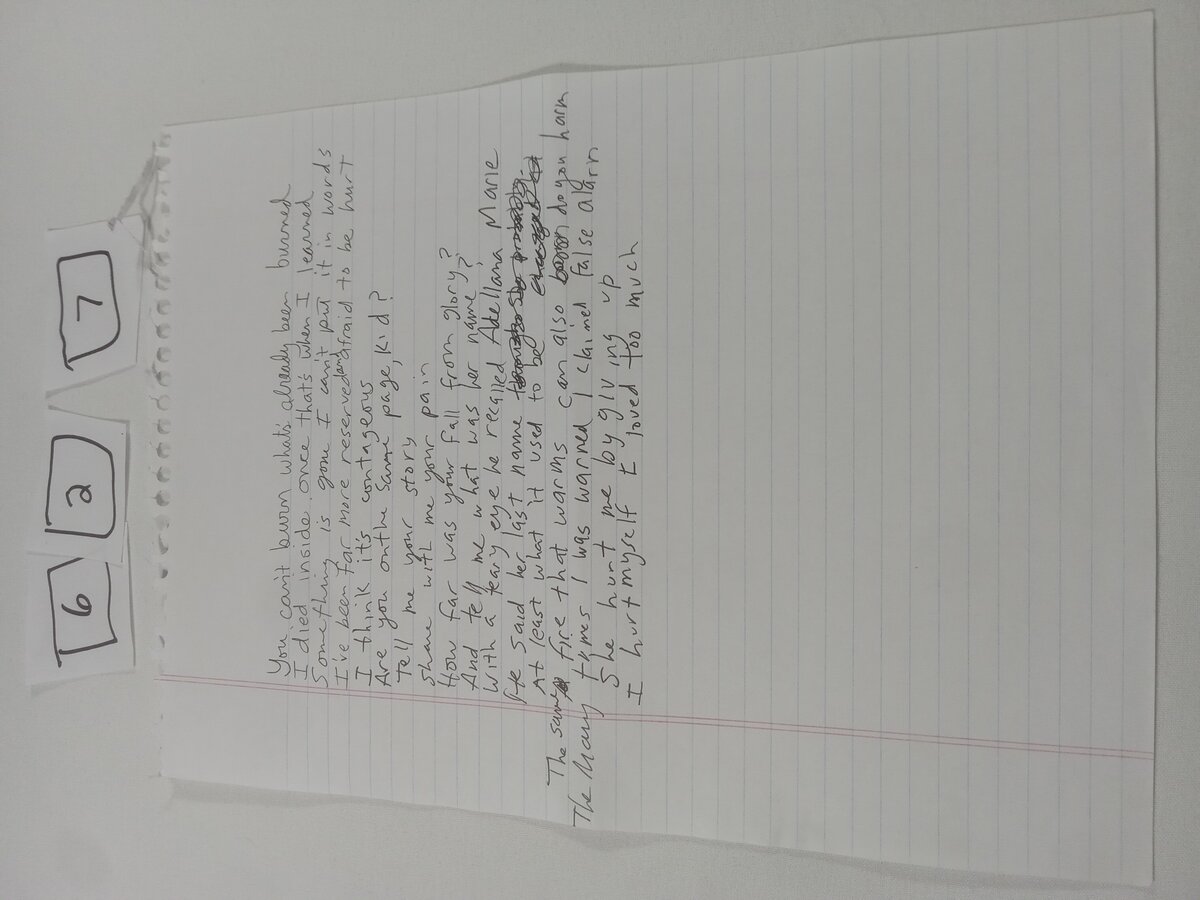 6 2 7
You can't burn what's already been burned
I died inside once that's when I learned
Something is gone I can't put it in words
I've been far more reserved and afraid to be hurt
I think it's contageous
Are you on the same page, kid?
Tell me your story
share with me your pain
How far was your fall from glory?
And tell me what was her name?
With a teary eye he recalled Abellana Marie
He said her last name
At least what it used to be
The same fire that warms can also do you harm
The Many times I was warned I claimed false alarm
She hurt me by giving up
I hurt myself I loved too much